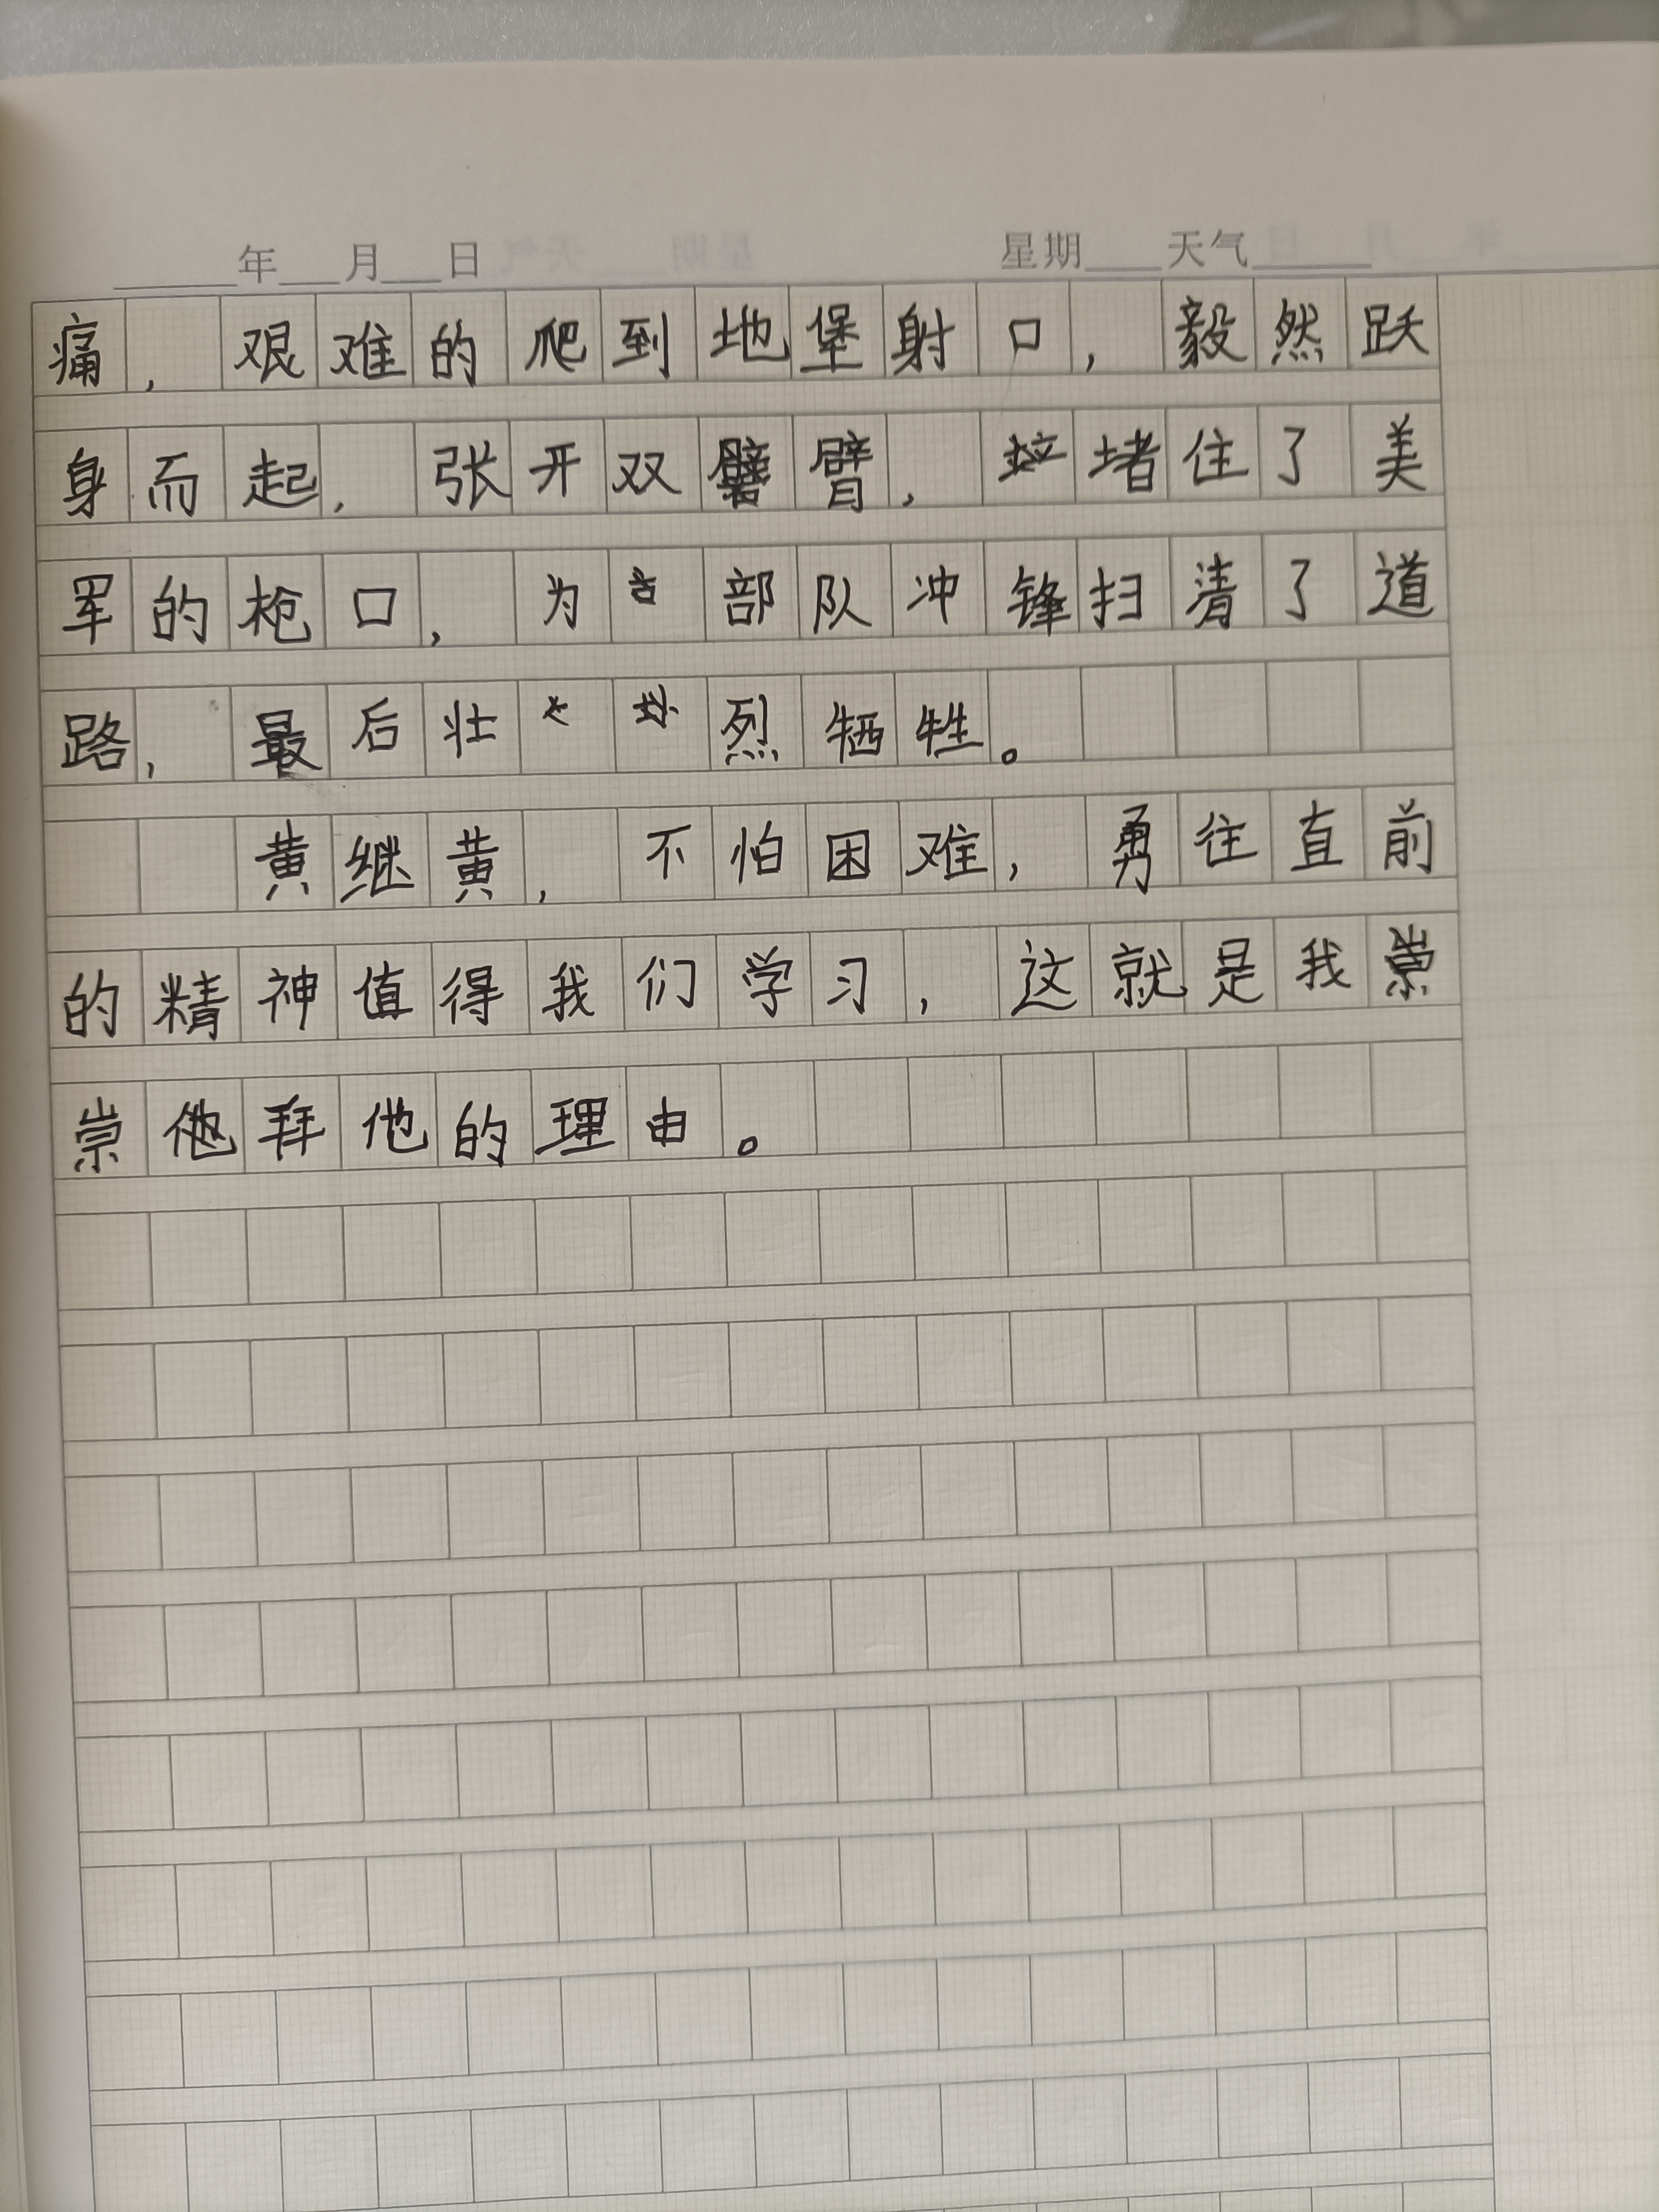 年 月 日 星期 天气
痛，艰难的爬到地堡射口，毅然跃
身而起，张开双臂，堵住了美
军的枪口，为部队冲锋扫清了道
路，最后壮烈牺牲。
黄继黄，不怕困难，勇往直前
的精神值得我们学习，这就是我崇
崇他拜他的理由。